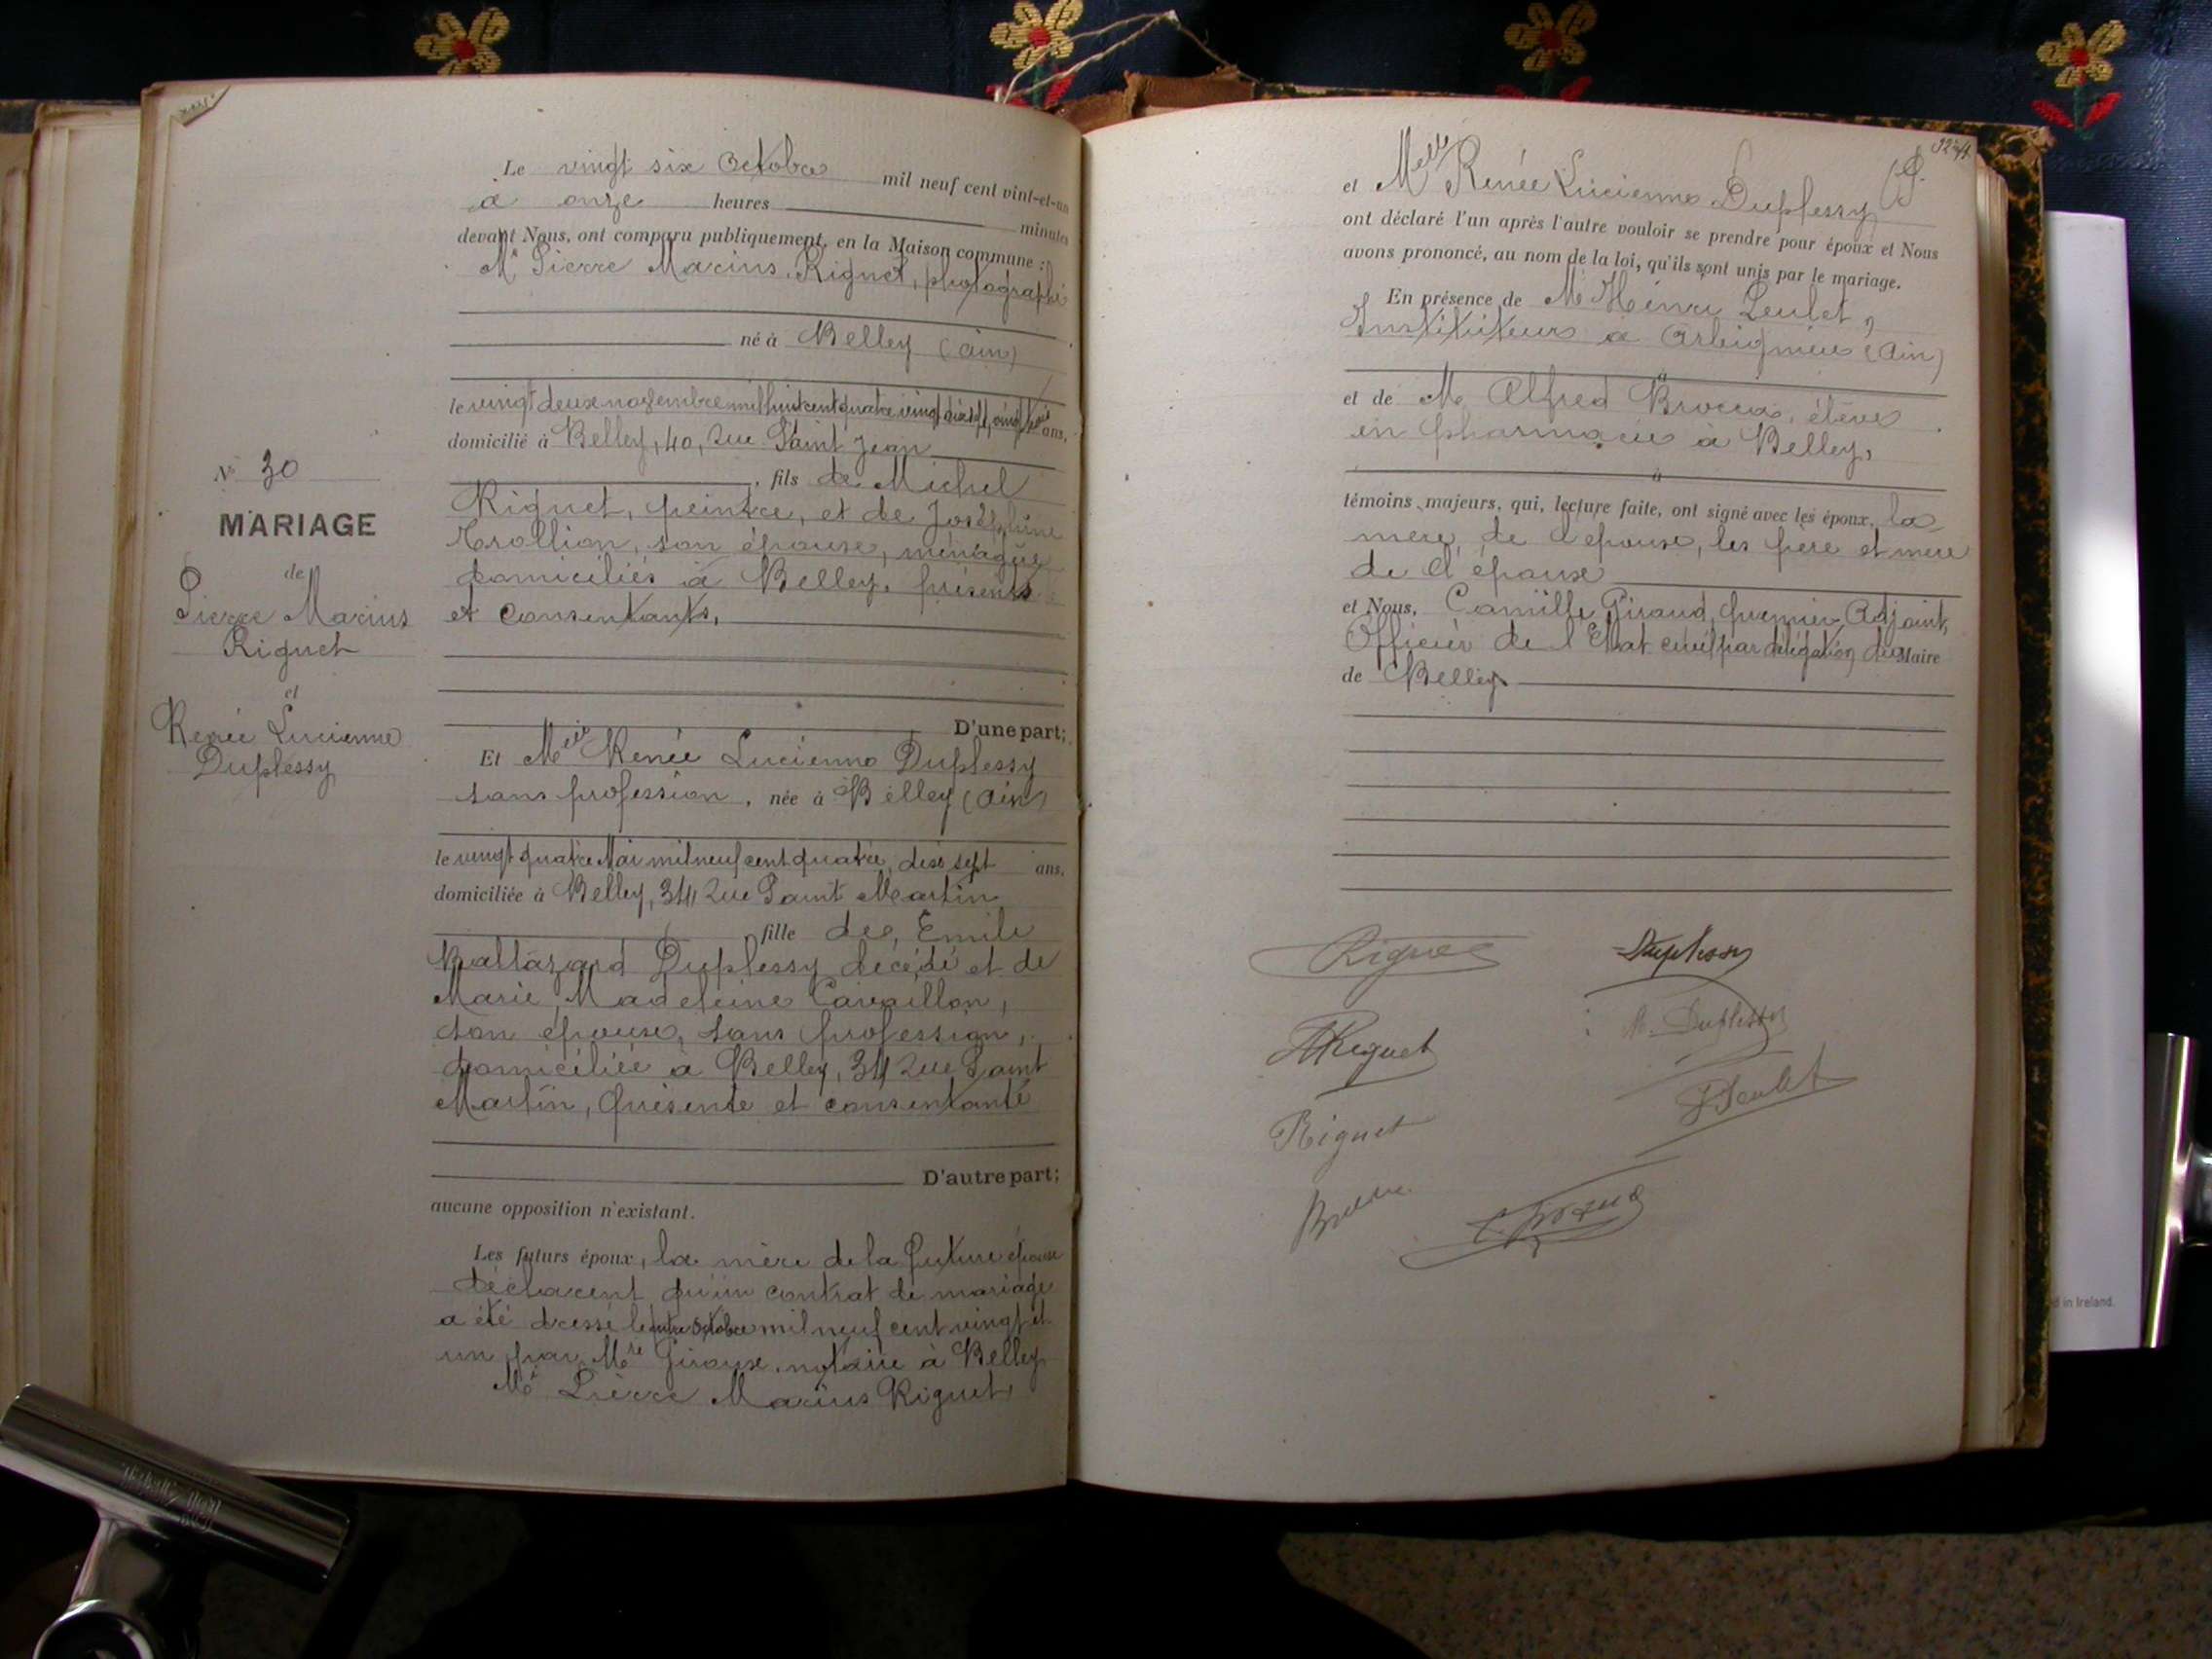 N° 30
MARIAGE
de
Pierre Marius
Riguet
et
Renée Lucienne
Duplessy
Le vingt six Octobre mil neuf cent vint-et-un
à onze heures minutes
devant Nous, ont comparu publiquement, en la Maison commune :
Mr Pierre Marius Riguet, photographe
né à Belley (Ain)
le vingt deux novembre mil huit cent quatre vingt dix sept, vingt trois ans,
domicilié à Belley, 40, Rue Saint Jean
, fils de Michel
Riguet, peintre, et de Joséphine
Trollion, son épouse, ménagère
domiciliés à Belley, présents
et consentants,
D'une part;
Et Melle Renée Lucienne Duplessy
sans profession, née à Belley (Ain)
le vingt quatre Mai mil neuf cent quatre, dix sept ans,
domiciliée à Belley, 34 Rue Saint Martin
, fille de Emile
Baltazard Duplessy décédé et de
Marie Madeleine Cavaillon,
son épouse, sans profession,
domiciliée à Belley, 34 Rue Saint
Martin, présente et consentante
D'autre part;
aucune opposition n'existant.
Les futurs époux, la mère de la future épouse
déclarent qu'un contrat de mariage
a été dressé le octobre mil neuf cent vingt et
un par Mre Giroux, notaire à Belley
Mr Pierre Marius Riguet,
et Melle Renée Lucienne Duplessy
ont déclaré l'un après l'autre vouloir se prendre pour époux et Nous
avons prononcé, au nom de la loi, qu'ils sont unis par le mariage.
En présence de Mr Henri Leulet,
Instituteur à Arbignieu (Ain)
et de M. Alfred élève
en pharmacie à Belley,
témoins majeurs, qui, lecture faite, ont signé avec les époux, la
mère de l'épouse, les père et mère
de l'époux
et Nous, Camille Giraud, premier Adjoint,
Officier de l'Etat civil par délégation du Maire
de Belley
Riguet
Duplessy
Riguet
M. Duplessy
Riguet
d in Ireland.